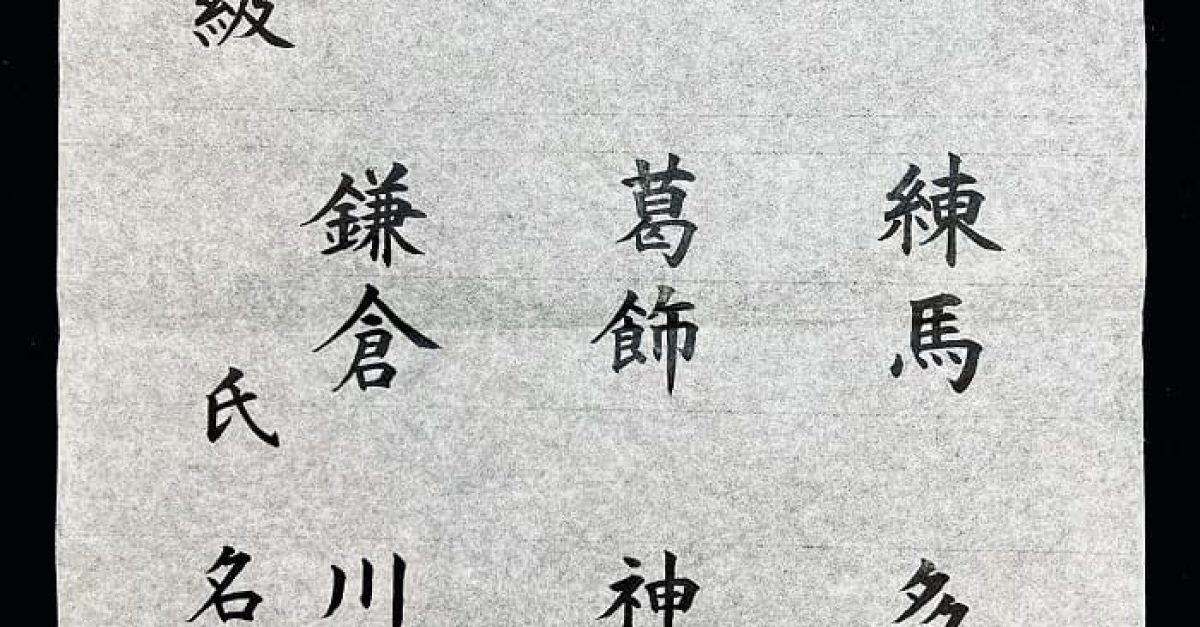 練馬 多
葛飾 神
鎌倉 川
級 氏 名